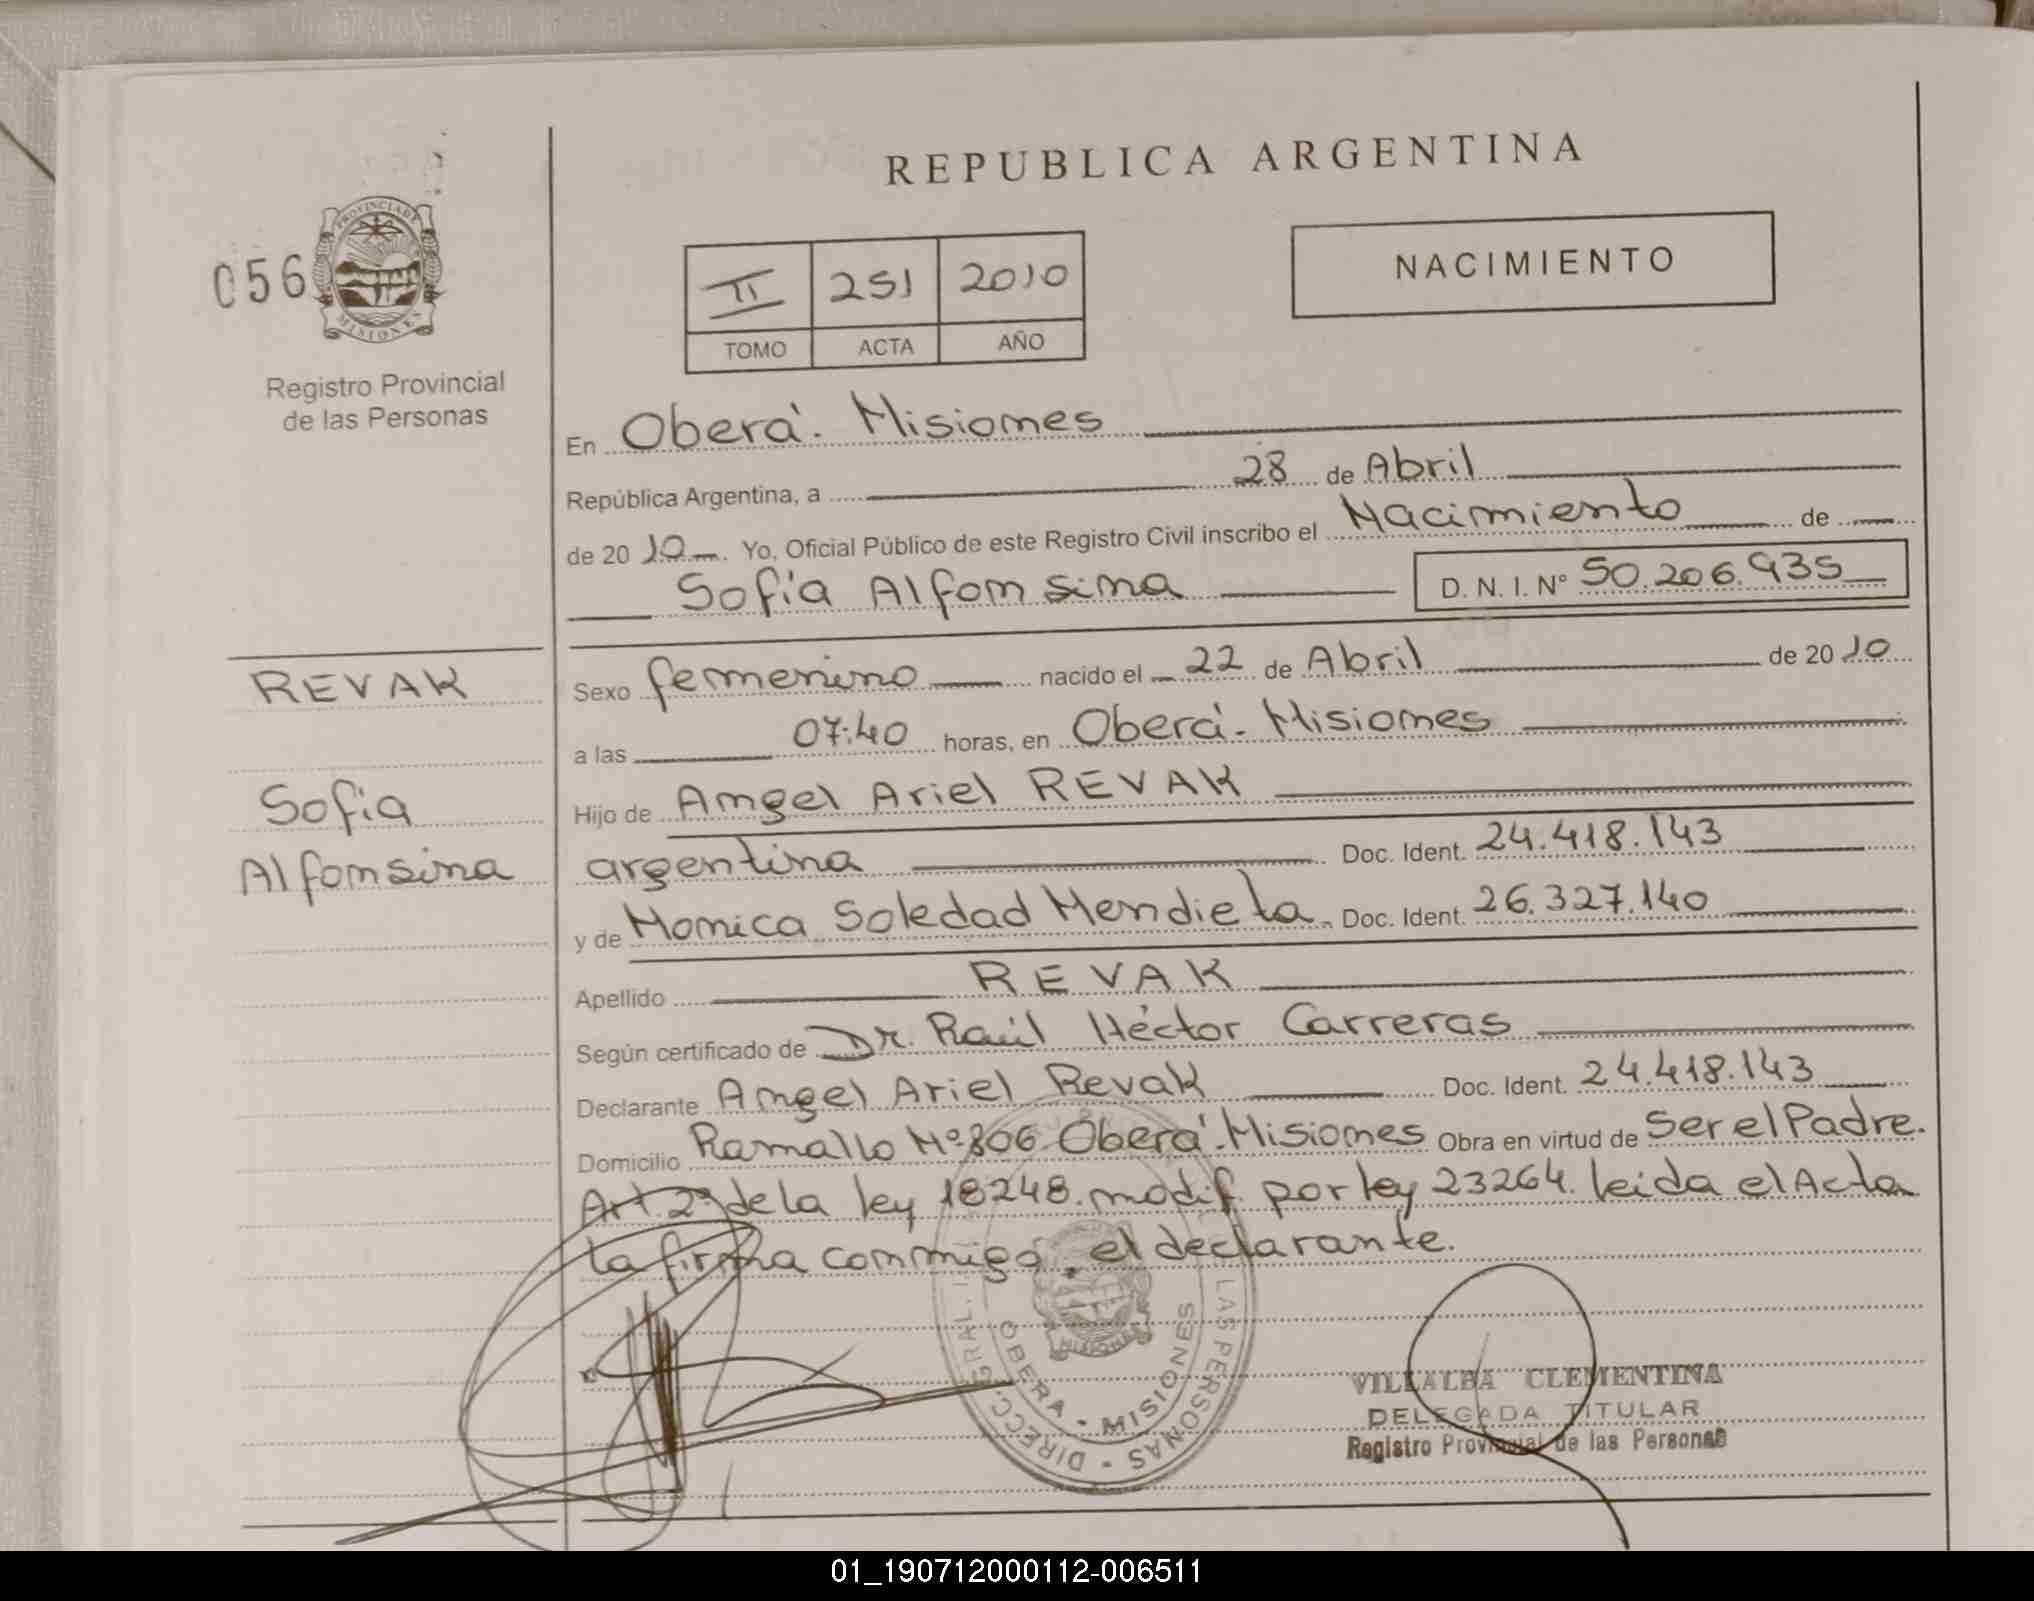 REPUBLICA ARGENTINA
056
PROVINCIA DE MISIONES
Registro Provincial
de las Personas
II 251 2010
TOMO ACTA AÑO
NACIMIENTO
En Oberá. Misiones
República Argentina, a 28 de Abril
de 2010 Yo, Oficial Público de este Registro Civil inscribo el Nacimiento de
Sofía Alfonsina D. N. I. N° 50.206.935
REVAK
Sofía
Alfonsina
Sexo femenino nacido el 22 de Abril de 2010
a las 07:40 horas, en Oberá. Misiones
Hijo de Angel Ariel REVAK
argentina Doc. Ident. 24.418.143
y de Monica Soledad Mendieta Doc. Ident. 26.327.140
Apellido REVAK
Según certificado de Dr. Raúl Héctor Carreras
Declarante Angel Ariel Revak Doc. Ident. 24.418.143
Domicilio Ramallo Nº 806 Oberá. Misiones Obra en virtud de Ser el Padre.
Art. 2º de la ley 18248. modif. por ley 23264. leida el Acta
la firma conmigo, el declarante.
OBERA - MISIONES
LAS PERSONAS
VILLALBA CLEMENTINA
DELEGADA TITULAR
Registro Provincial de las Personas
01_190712000112-006511